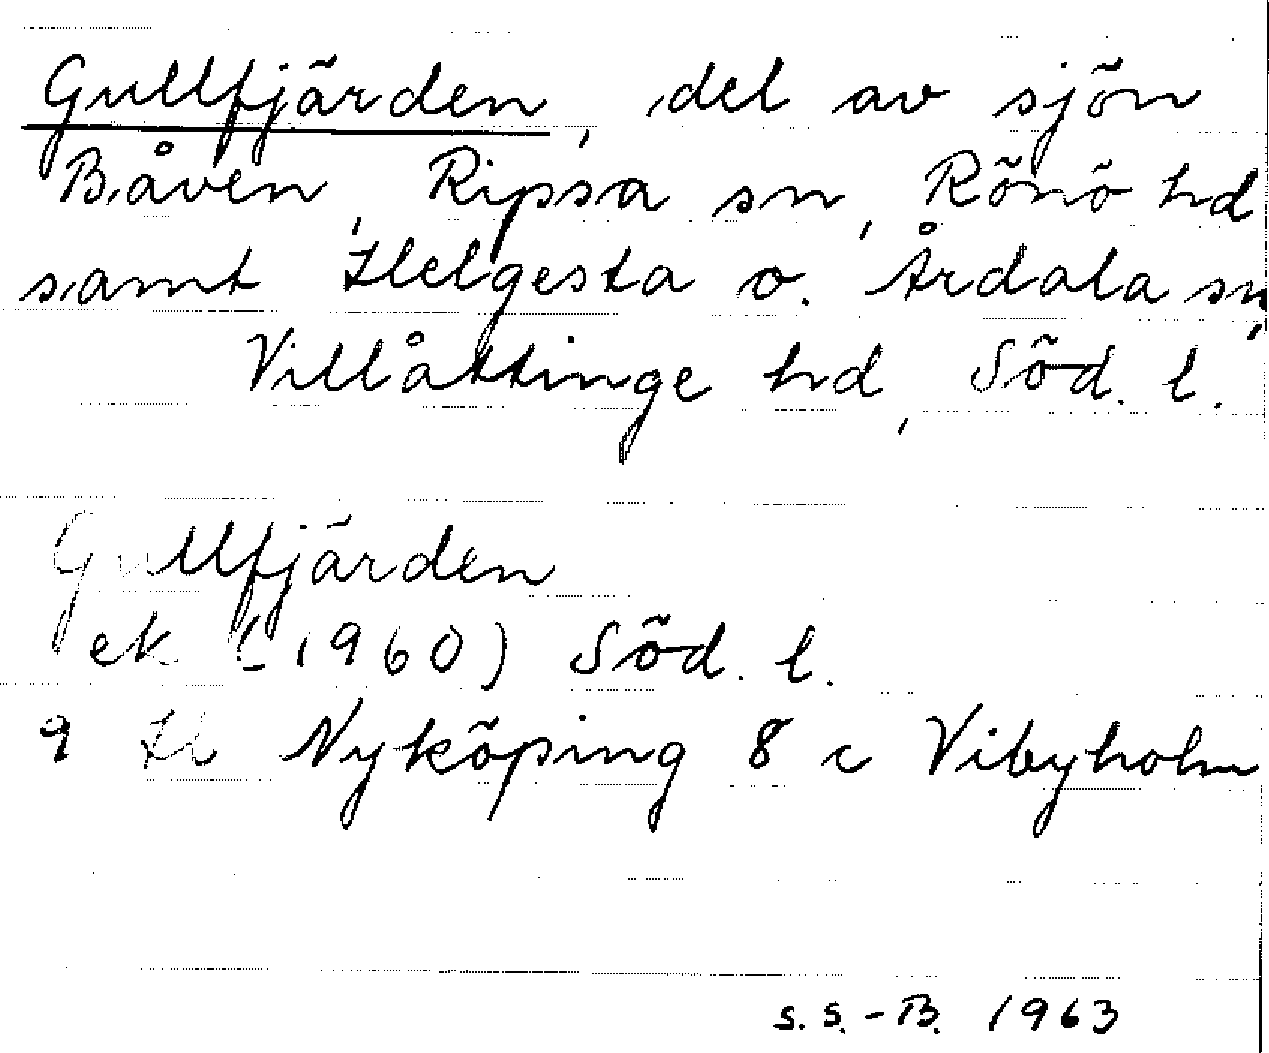 Gullfjärden, del av sjön
Båven, Ripsa sn, Rönö hd
samt Helgesta o. Årdala sn,
Villåttinge hd, Söd. l.
Gullfjärden
ek (1960) Söd. l.
9 Nyköping 8 c Vibyholm
S.S.-B. 1963